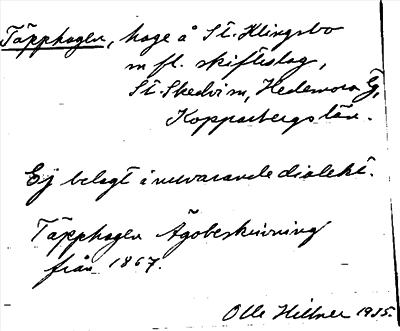 Täpphagen, hage å St. Klingsbo
m fl. skifteslag,
St Skedvi sn, Hedemora tg,
Kopparbergs län.
Ej belagt i nuvarande dialekt.
Täpphagen Ägobeskrivning
från 1867.
Olle Hillner 1935.